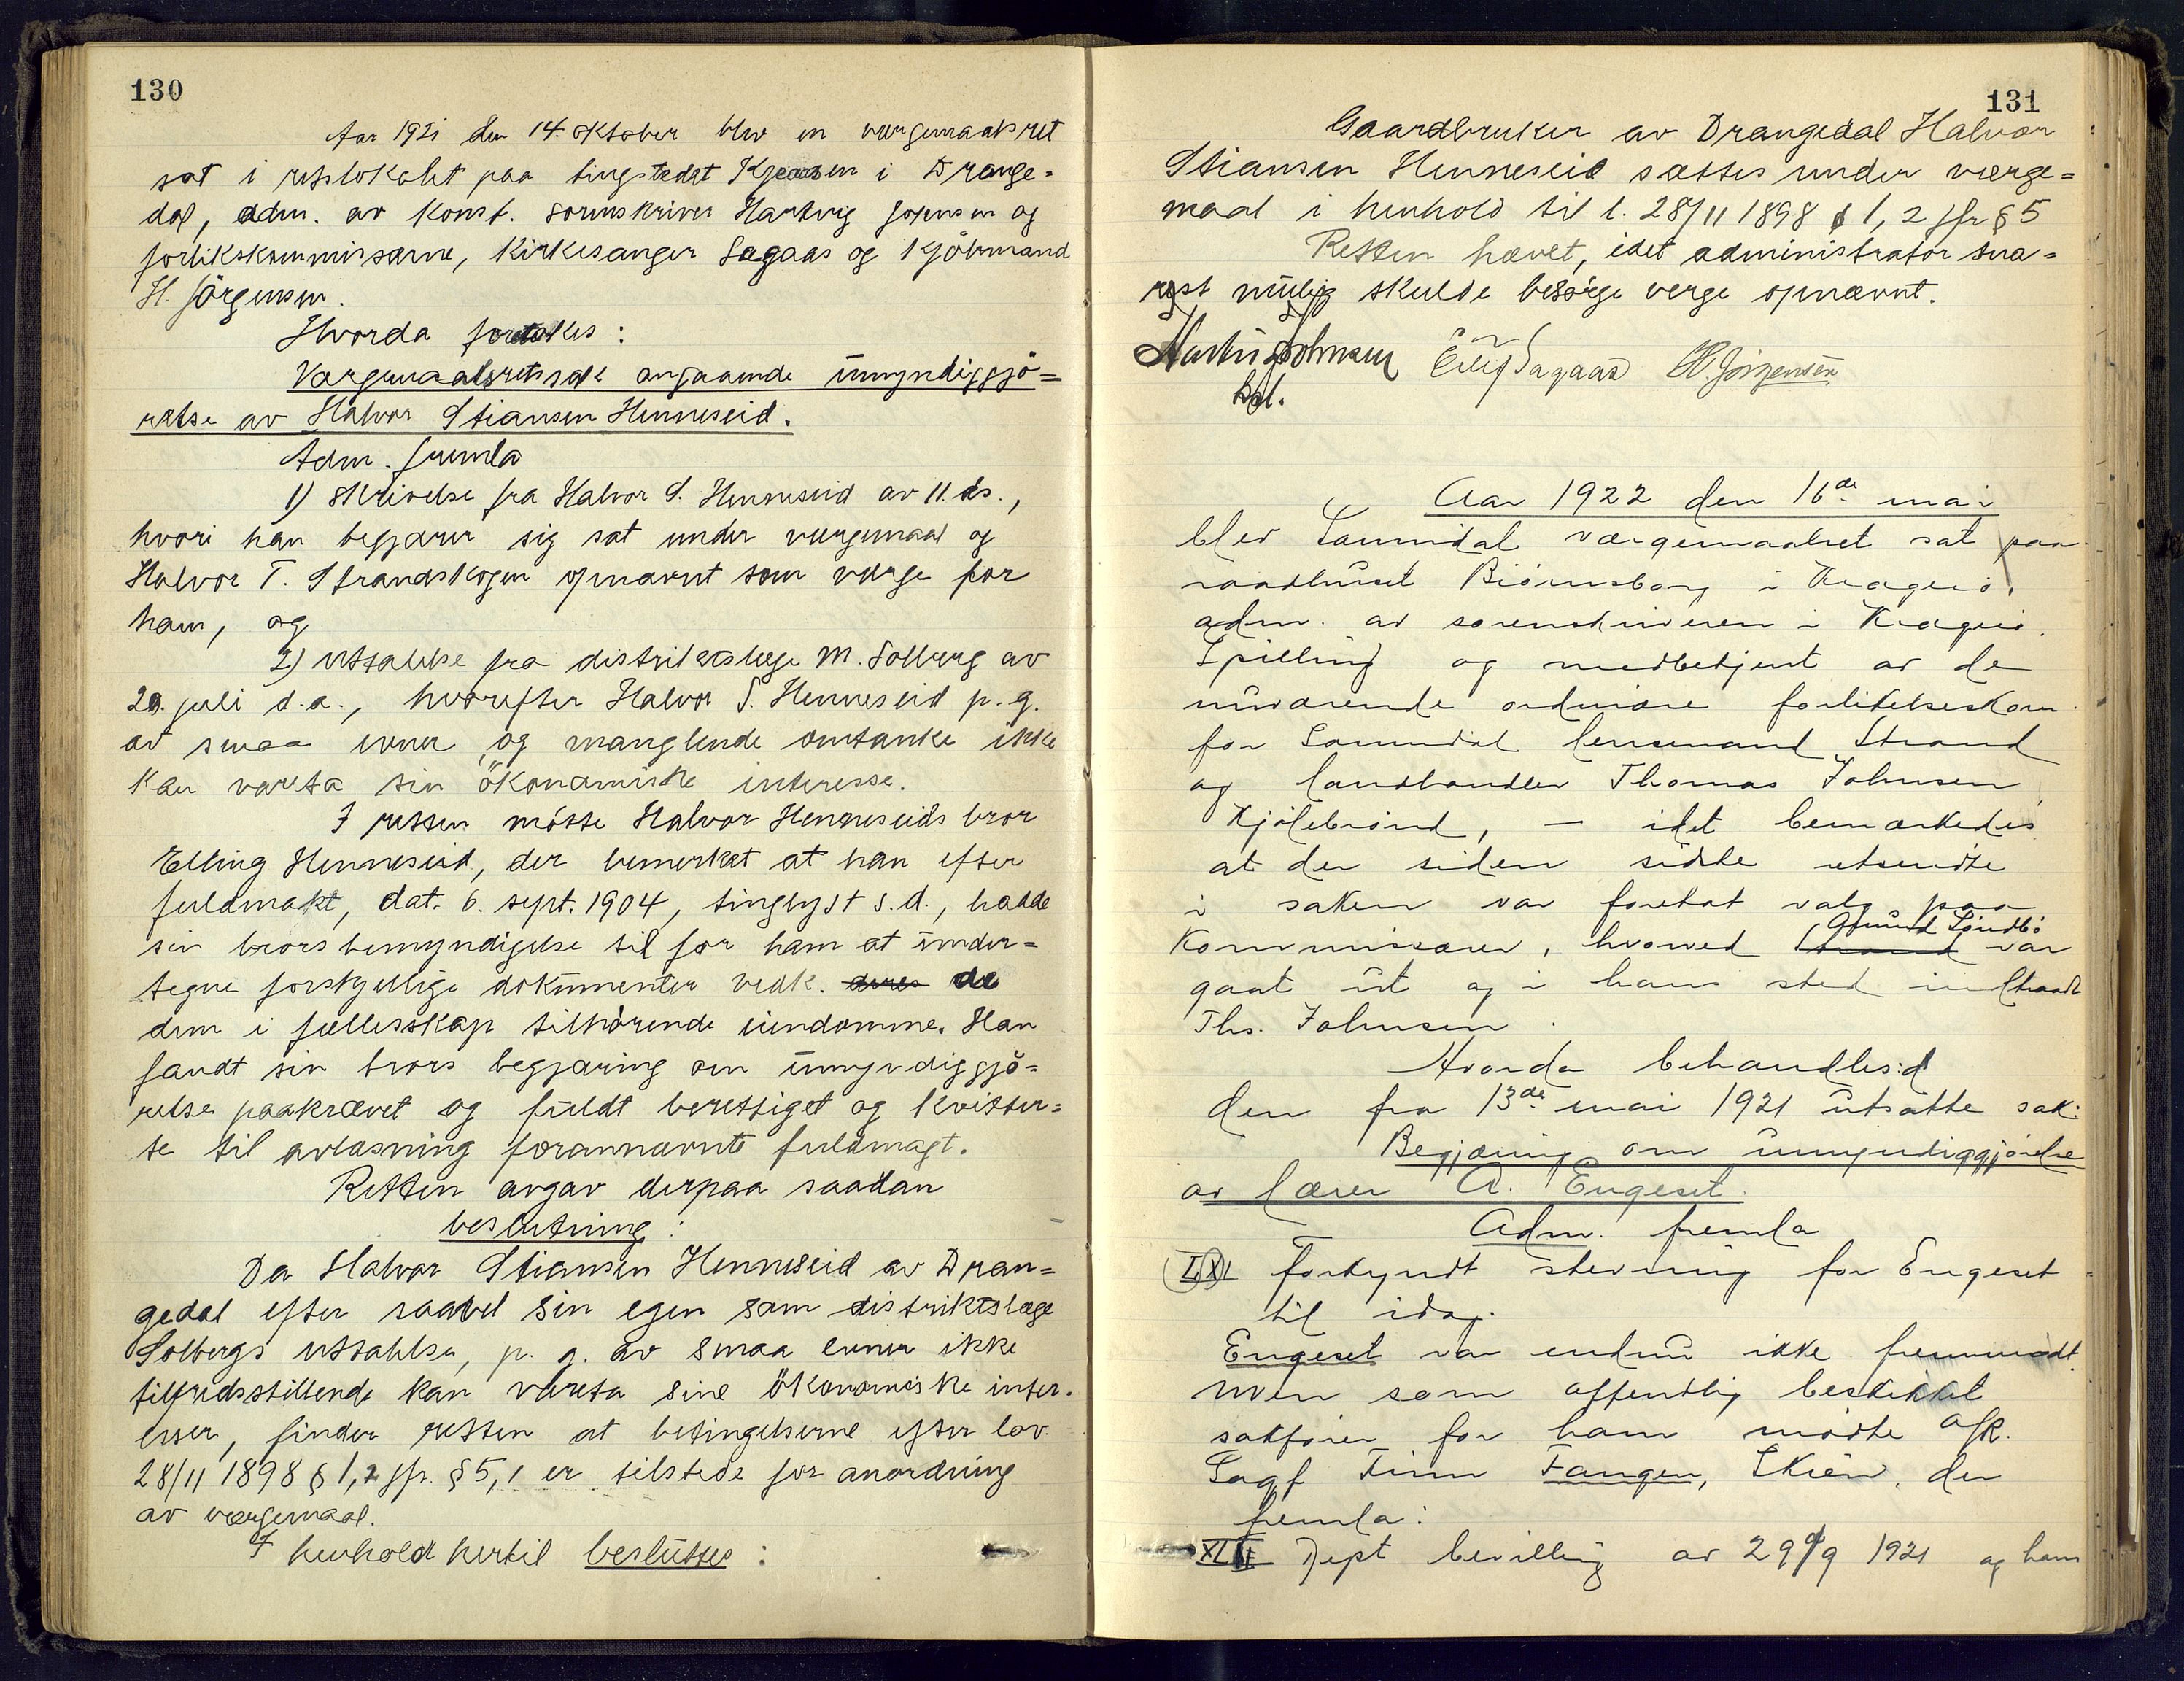 130
Aar 1921 den 14. oktober blev en vergemaalsret
sat i retslokalet paa tingstedet Kjeøsen i Drange=
dal, adm. av konst. sorenskriver Hartvig Johnsen og
forlikskommissærne, kirkesanger Sagaas og kjöbmand
H. Jörgensen.
Hvorda foretokes:
Værgemaalsretssak angaaende umyndiggjö=
relse av Halvor Stiansen Henneseid.
Adm. fremla
1) Skrivelse fra Halvor S. Henneseid av 11. ds.,
hvori han begjærer sig sat under værgemaal og
Halvor T. Strandskogen opnævnt som værge for
ham, og
2) uttalelse fra distriktslæge M. Solberg av
20. juli d.a., hvorefter Halvor S. Henneseid p.g.
av smaa evner og manglende omtanke ikke
kan vareta sin ökonomiske interesse.
I retten mötte Halvor Henneseids bror
Elling Henneseid, der bemerket at han efter
fuldmakt, dat. 6. sept. 1904, tinglyst s.d., hadde
sin brors bemyndigelse til for ham at under=
tegne forskjellige dokumenter vedk. deres de
dem i fællesskap tilhörende eiendomme. Han
fandt sin brors begjæring om umyndiggjö=
relse paakrævet og fuldt berettiget og kvitter=
te til avlæsning forannævnte fuldmagt.
Retten avgav derpaa saadan
beslutning:
Da Halvor Stiansen Henneseid av Dran=
gedal efter saavel sin egen som distriktslæge
Solbergs uttalelse, p. g. av smaa evner ikke
tilfredsstillende kan vareta sine ökonomiske inter-
esser, finder retten at betingelserne efter lov
28/11 1898 § 1, 2 jfr. § 5, 1 er tilstede for anordning
av værgemaal.
I henhold hertil besluttes:
131
Gaardbruker av Drangedal Halvor
Stiansen Henneseid sættes under værge=
maal i henhold til l. 28/11 1898 § 1, 2 jfr § 5
Retten hævet, idet administrator sna=
rest mulig skulde besörge verge opnævnt.
Hartvig Johnsen Eilef Sagaas H. Jörgensen
kst.
Aar 1922 den 16de mai
blev Sannidal værgemaalret sat paa
raadhuset Biörnsborg i Kragerö,
adm. av sorenskriveren i Kragerö
Spilling og medbetjent av de
nuværende ordinære forlikelseskom.
for Sannidal lensmand Strand
og landhandler Thomas Johnsen,
Kjölebrönd, – idet bemærkedes
at der siden sidste utsendte
i saken var foretat valg paa
Kommissærer, hvorved Strand Amund Lindbö var
gaat ut og i hans sted indtraadt
Ths. Johnsen.
Hvorda behandles:d
den fra 13de mai 1921 utsatte sak:
Begjæring om umyndiggjörelse
av lærer A. Engeset.
Adm. fremla
LXI Forkyndt stevning for Engeset
til idag.
Engeset var endnu ikke fremmödt
men som offentlig beskikket
sakförer for ham mödte Ofr.
Sagf Finn Fangen, Skien, der
fremla:
XLII Dept bevilling av 29/9 1921 og hans